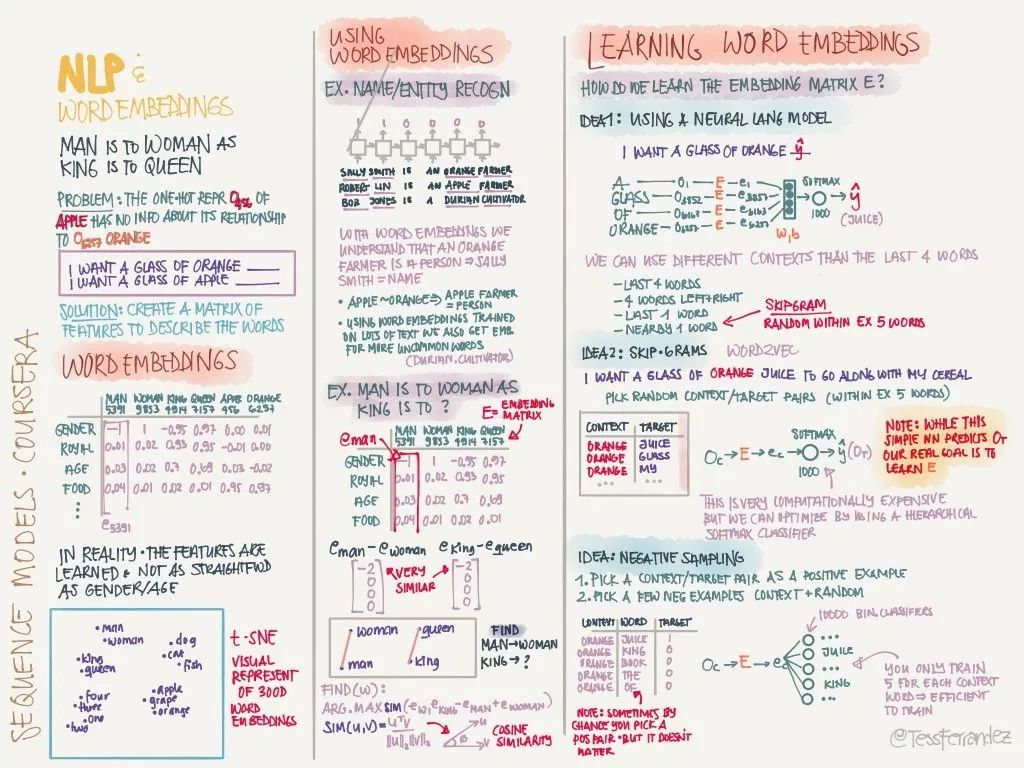 SEQUENCE MODELS · COURSERA
NLP &
WORD EMBEDDINGS
MAN IS TO WOMAN AS
KING IS TO QUEEN
PROBLEM: THE ONE-HOT REPR O456 OF
APPLE HAS NO INFO ABOUT ITS RELATIONSHIP
TO O6257 ORANGE
I WANT A GLASS OF ORANGE ____
I WANT A GLASS OF APPLE ____
SOLUTION: CREATE A MATRIX OF
FEATURES TO DESCRIBE THE WORDS
WORD EMBEDDINGS
MAN WOMAN KING QUEEN APPLE ORANGE
5391 9853 4914 7157 456 6257
GENDER -1 1 -0.95 0.97 0.00 0.01
ROYAL 0.01 0.02 0.93 0.95 -0.01 0.00
AGE 0.03 0.02 0.7 0.69 0.03 -0.02
FOOD 0.04 0.01 0.02 0.01 0.95 0.97
e5391
IN REALITY · THE FEATURES ARE
LEARNED & NOT AS STRAIGHTFWD
AS GENDER/AGE
man
woman
king
queen
dog
cat
fish
four
three
one
two
apple
grape
orange
t-SNE
VISUAL
REPRESENT
OF 300D
WORD
EMBEDDINGS
USING
WORD EMBEDDINGS
EX. NAME/ENTITY RECOGN
1 1 0 0 0 0
SALLY SMITH IS AN ORANGE FARMER
ROBERT LIN IS AN APPLE FARMER
BOB JONES IS A DURIAN CULTIVATOR
WITH WORD EMBEDDINGS WE
UNDERSTAND THAT AN ORANGE
FARMER IS A PERSON ⇒ SALLY
SMITH = NAME
• APPLE ~ORANGE ⇒ APPLE FARMER
= PERSON
• USING WORD EMBEDDINGS TRAINED
ON LOTS OF TEXT WE ALSO GET EMB.
FOR MORE UNCOMMON WORDS
(DURIAN, CULTIVATOR)
EX. MAN IS TO WOMAN AS
KING IS TO ?
E= EMBEDDING
MATRIX
eman
MAN WOMAN KING QUEEN
5391 9853 4914 7157
GENDER -1 1 -0.95 0.97
ROYAL 0.01 0.02 0.93 0.95
AGE 0.03 0.02 0.7 0.69
FOOD 0.04 0.01 0.02 0.01
eman - ewoman eking - equeen
-2 0 0 0
VERY
SIMILAR
-2 0 0 0
woman
queen
man
king
FIND
MAN→WOMAN
KING→?
FIND(W):
ARG.MAX SIM(ew, eKING - eMAN + eWOMAN)
SIM(U,V) = uTv / ||u||2 ||v||2
u
ø
v
COSINE
SIMILARITY
LEARNING WORD EMBEDDINGS
HOW DO WE LEARN THE EMBEDDING MATRIX E?
IDEA1: USING A NEURAL LANG MODEL
I WANT A GLASS OF ORANGE ŷ
A — O1 — E — e1
GLASS — O3852 — E — e3852
OF — O6163 — E — e6163
ORANGE — O6257 — E — e6257
w,b
SOFTMAX
1000
ŷ
(JUICE)
WE CAN USE DIFFERENT CONTEXTS THAN THE LAST 4 WORDS
- LAST 4 WORDS
- 4 WORDS LEFT+RIGHT
- LAST 1 WORD
- NEARBY 1 WORD
SKIPGRAM
RANDOM WITHIN EX 5 WORDS
IDEA2: SKIP·GRAMS WORD2VEC
I WANT A GLASS OF ORANGE JUICE TO GO ALONG WITH MY CEREAL
PICK RANDOM CONTEXT/TARGET PAIRS (WITHIN EX 5 WORDS)
CONTEXT TARGET
ORANGE JUICE
ORANGE GLASS
ORANGE MY
...
Oc → E → ec → ŷ (OT)
SOFTMAX
1000
NOTE: WHILE THIS
SIMPLE NN PREDICTS OT
OUR REAL GOAL IS TO
LEARN E
THIS IS VERY COMPUTATIONALLY EXPENSIVE
BUT WE CAN OPTIMIZE BY USING A HIERARCHICAL
SOFTMAX CLASSIFIER
IDEA: NEGATIVE SAMPLING
1. PICK A CONTEXT/TARGET PAIR AS A POSITIVE EXAMPLE
2. PICK A FEW NEG EXAMPLES CONTEXT + RANDOM
CONTEXT WORD TARGET
ORANGE JUICE 1
ORANGE KING 0
ORANGE BOOK 0
ORANGE THE 0
ORANGE OF 0
NOTE: SOMETIMES BY
CHANCE YOU PICK A
POS PAIR · BUT IT DOESNT
MATTER
Oc → E → ec
10000 BIN. CLASSIFIERS
...
JUICE
...
KING
...
YOU ONLY TRAIN
5 FOR EACH CONTEXT
WORD ⇒ EFFICIENT
TO TRAIN
@TessFerrandez